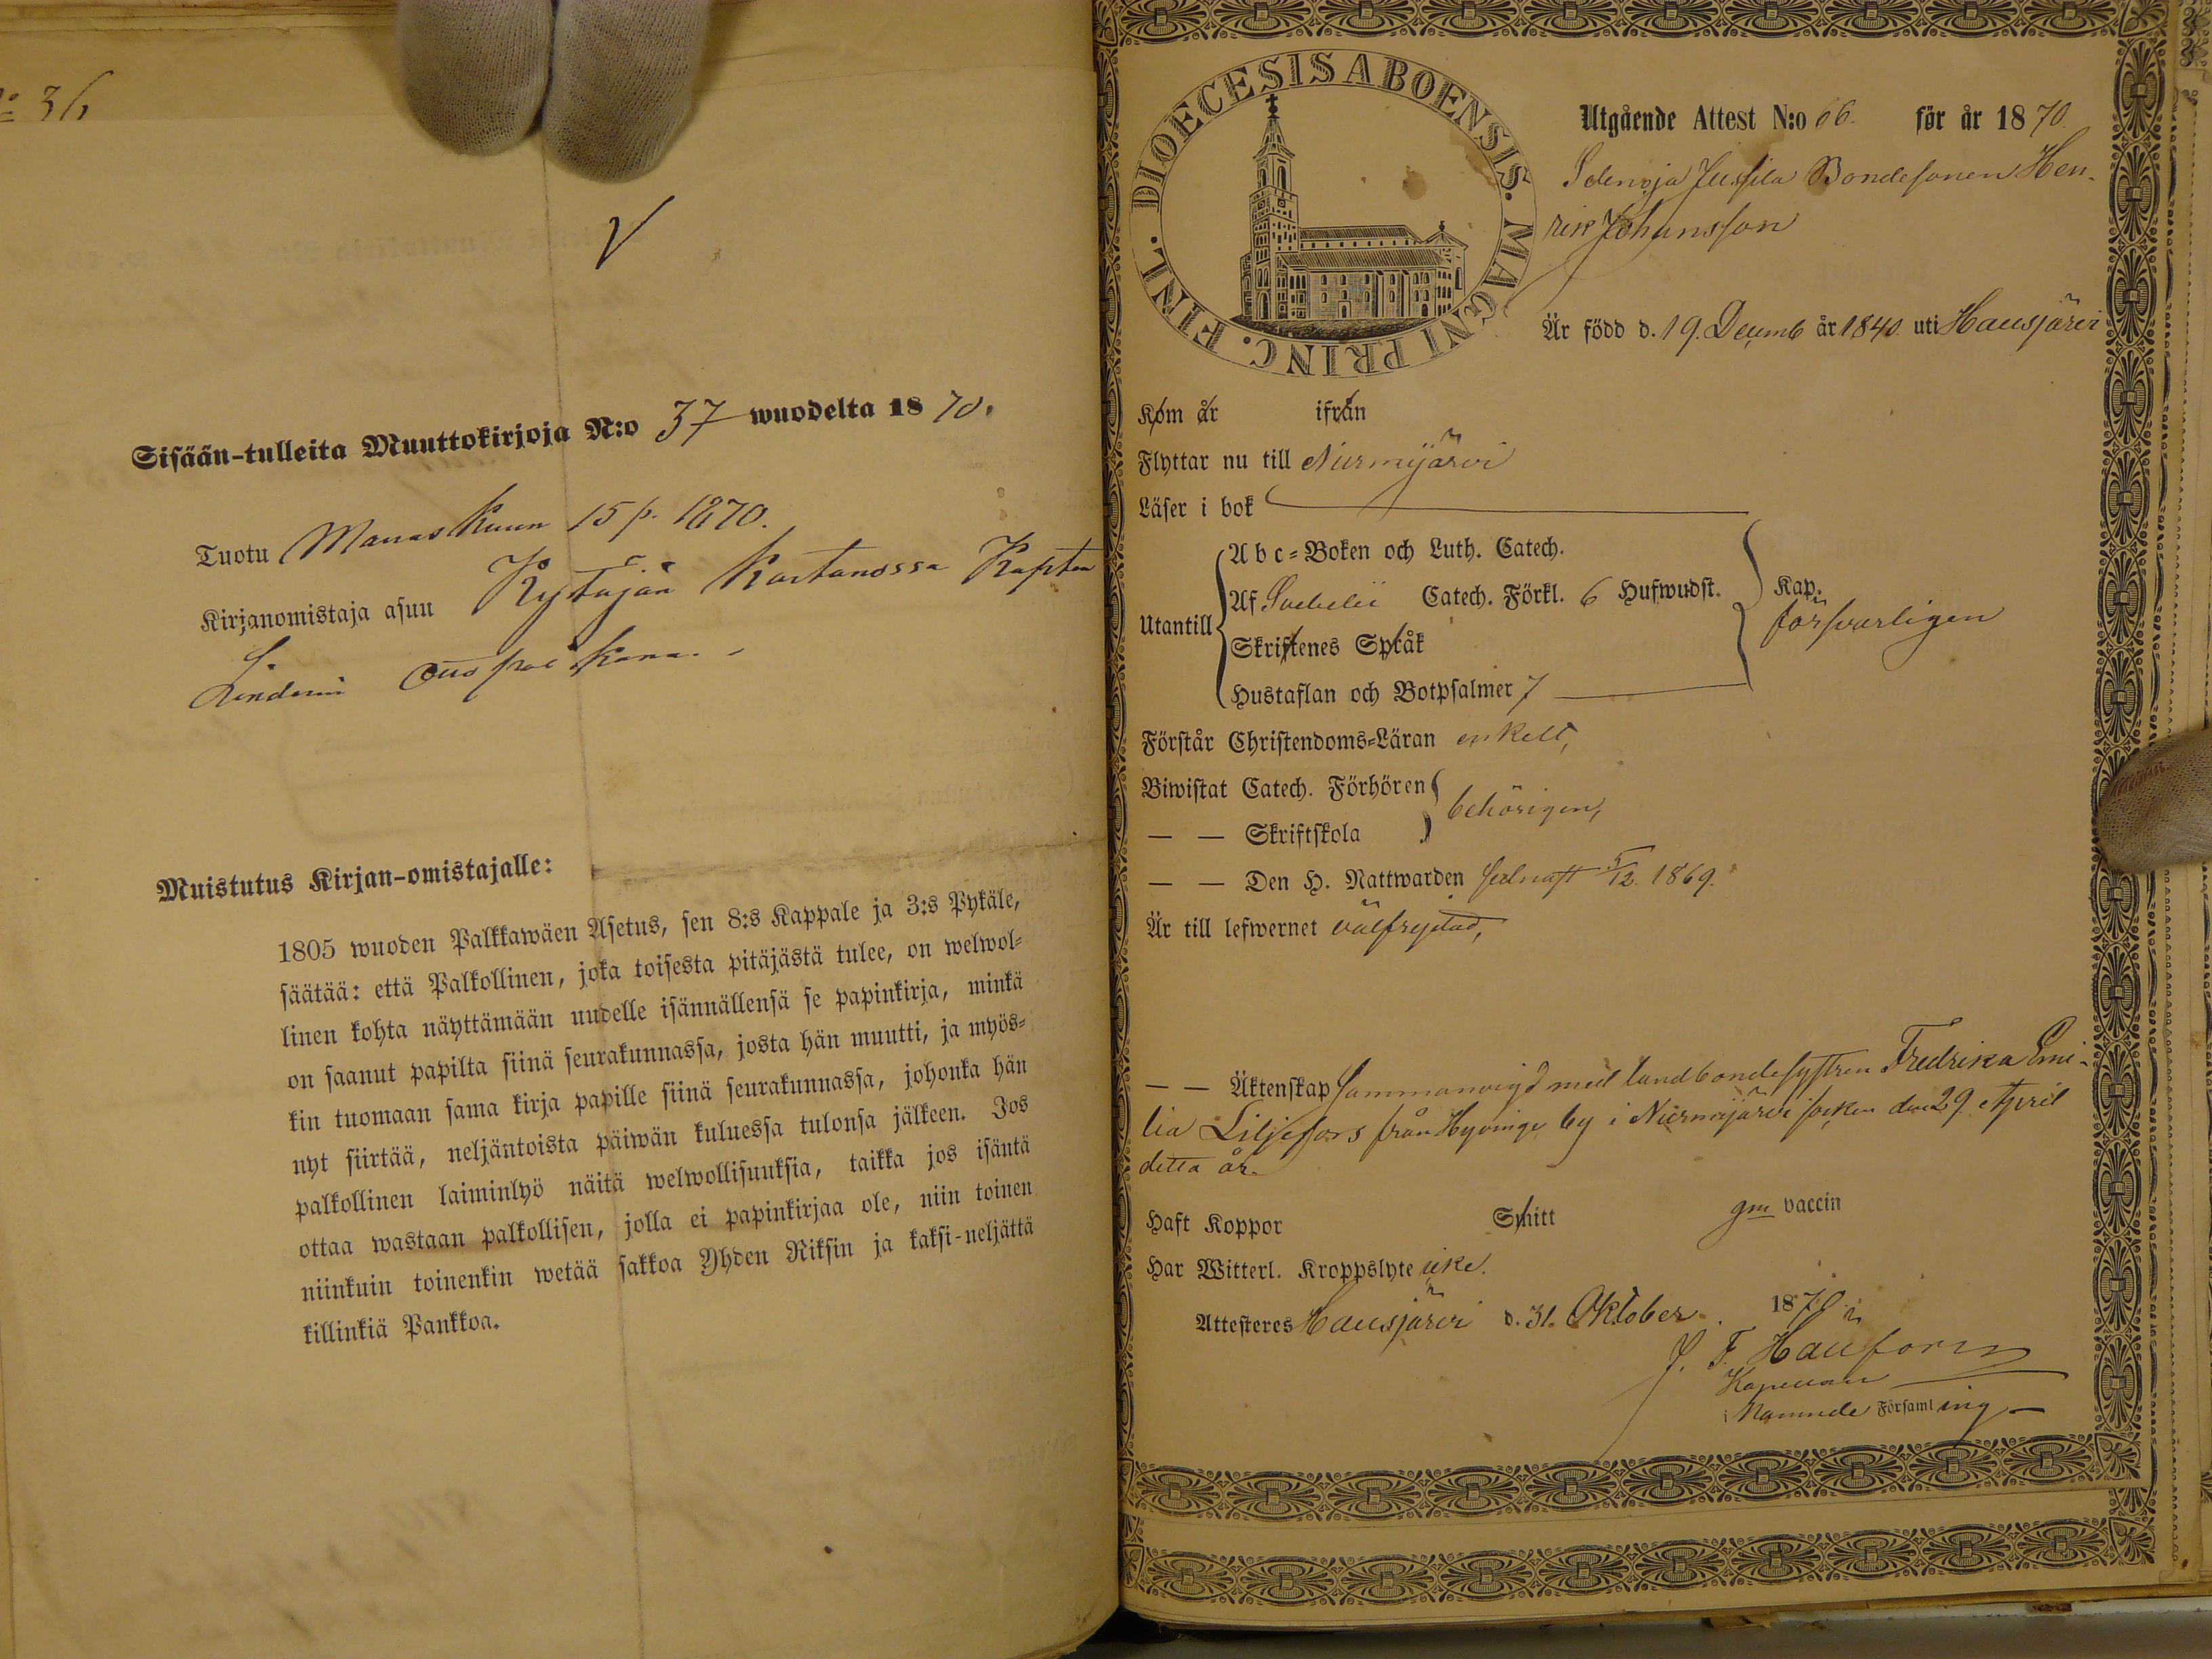 36
V
Sisään-tulleita Muuttokirjoja N:o 37 wuodelta 1870.
Tuotu Marraskuun 15 p. 1870.
Kirjanomistaja asuu Kytäjän Kartanossa
Muistutus Kirjan-omistajalle:
1805 wuoden Palkkawäen Asetus, sen 8:s Kappale ja 3:s Pykäle,
säätää: että Palkollinen, joka toisesta pitäjästä tulee, on welwol-
linen kohta näyttämään uudelle isännällensä se papinkirja, minkä
on saanut papilta siinä seurakunnassa, josta hän muutti, ja myös-
kin tuomaan sama kirja papille siinä seurakunnassa, johonka hän
nyt siirtää, neljäntoista päiwän kuluessa tulonsa jälkeen. Jos
palkollinen laiminlyö näitä welwollisuuksia, taikka jos isäntä
ottaa wastaan palkollisen, jolla ei papinkirjaa ole, niin toinen
niinkuin toinenkin wetää sakkoa Yhden Riksin ja kaksi-neljättä
killinkiä Pankkoa.
DIOECESIS ABOENSIS. MAGNI PRINC. FINL.
Utgående Attest N:o 66. för år 1870.
Jussila Bondesonen Hen-
rik Johansson
Är född d. 19. Decemb år 1840 uti Hausjärvi
Kom år ifrån
Flyttar nu till Nurmijärvi
Läser i bok
Utantill
Abc-Boken och Luth. Catech.
Af Svebelii Catech. Förkl. 6 Hufwudst.
Skriftenes Språk
Hustaflan och Botpsalmer 7
Kap.
försvarligen
Förstår Christendoms-Läran enkelt,
Biwistat Catech. Förhören
— — Skriftskola
behörigen,
— — Den H. Nattwarden sednast 5/12. 1869.
Är till lefwernet välfrejdad,
— — Äktenskap Sammanvigd med landbondesystren Fredrika Emi-
lia Liljefors från Hyvinge by i Nurmijärvi socken den 29 April
detta år.
Haft Koppor Smitt gm vaccin
Har Witterl. Kroppslyte icke.
Attesteres Hausjärvi d. 31. Oktober. 1870
J. F. Haufors
Kapellan
i Namnde Församling